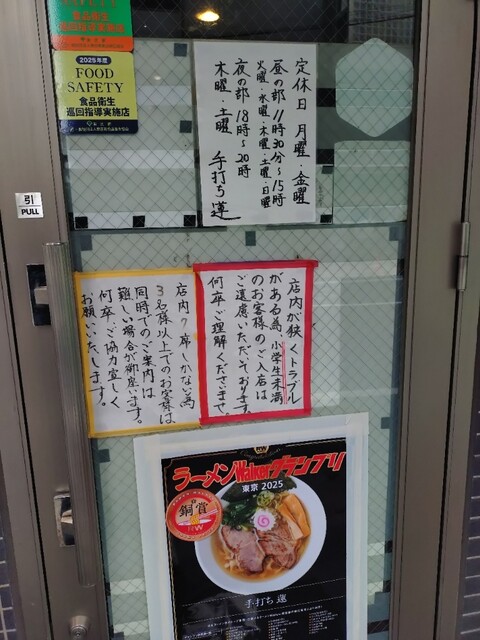 食品衛生
巡回指導実施店
2025年度
FOOD
SAFETY
食品衛生
巡回指導実施店
引
PULL
定休日 月曜・金曜
昼の部 11時30分〜15時
火曜・水曜・木曜・土曜・日曜
夜の部 18時〜20時
木曜・土曜
手打ち蓮
店内が狭くトラブル
がある為、小学生未満
のお客様のご入店は
ご遠慮いただいております。
何卒ご理解くださいませ。
店内7席しかない為
3名様以上でのお客様は
同時でのご案内は
難しい場合が御座います。
何卒、ご協力宜しく
お願いいたします。
ラーメンWalkerグランプリ
東京 2025
銅賞
RW
手打ち 蓮